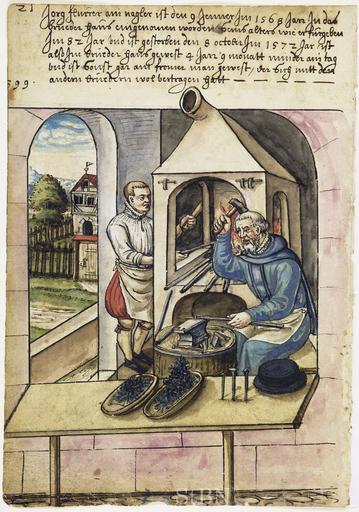 21
Jorg feurer ain nagler ist den 9 Jenner im 1568 Jar In das
brueder hauß eingenomen worden seins alters wie er fürgeben
Im 82 Jar vnd ist gestorben den 8 october Im 1572 Jar ist
also Im brueder hauß gewest 4 Jar 9 monatt minder ain tag
vnd ist sonst gar ain fromer man gewest, der sich mitt den
andern bruedern wol betragen hatt
99.
StBN